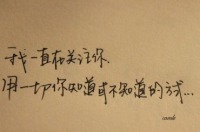 我一直在关注你
用一切你知道或不知道的方式...